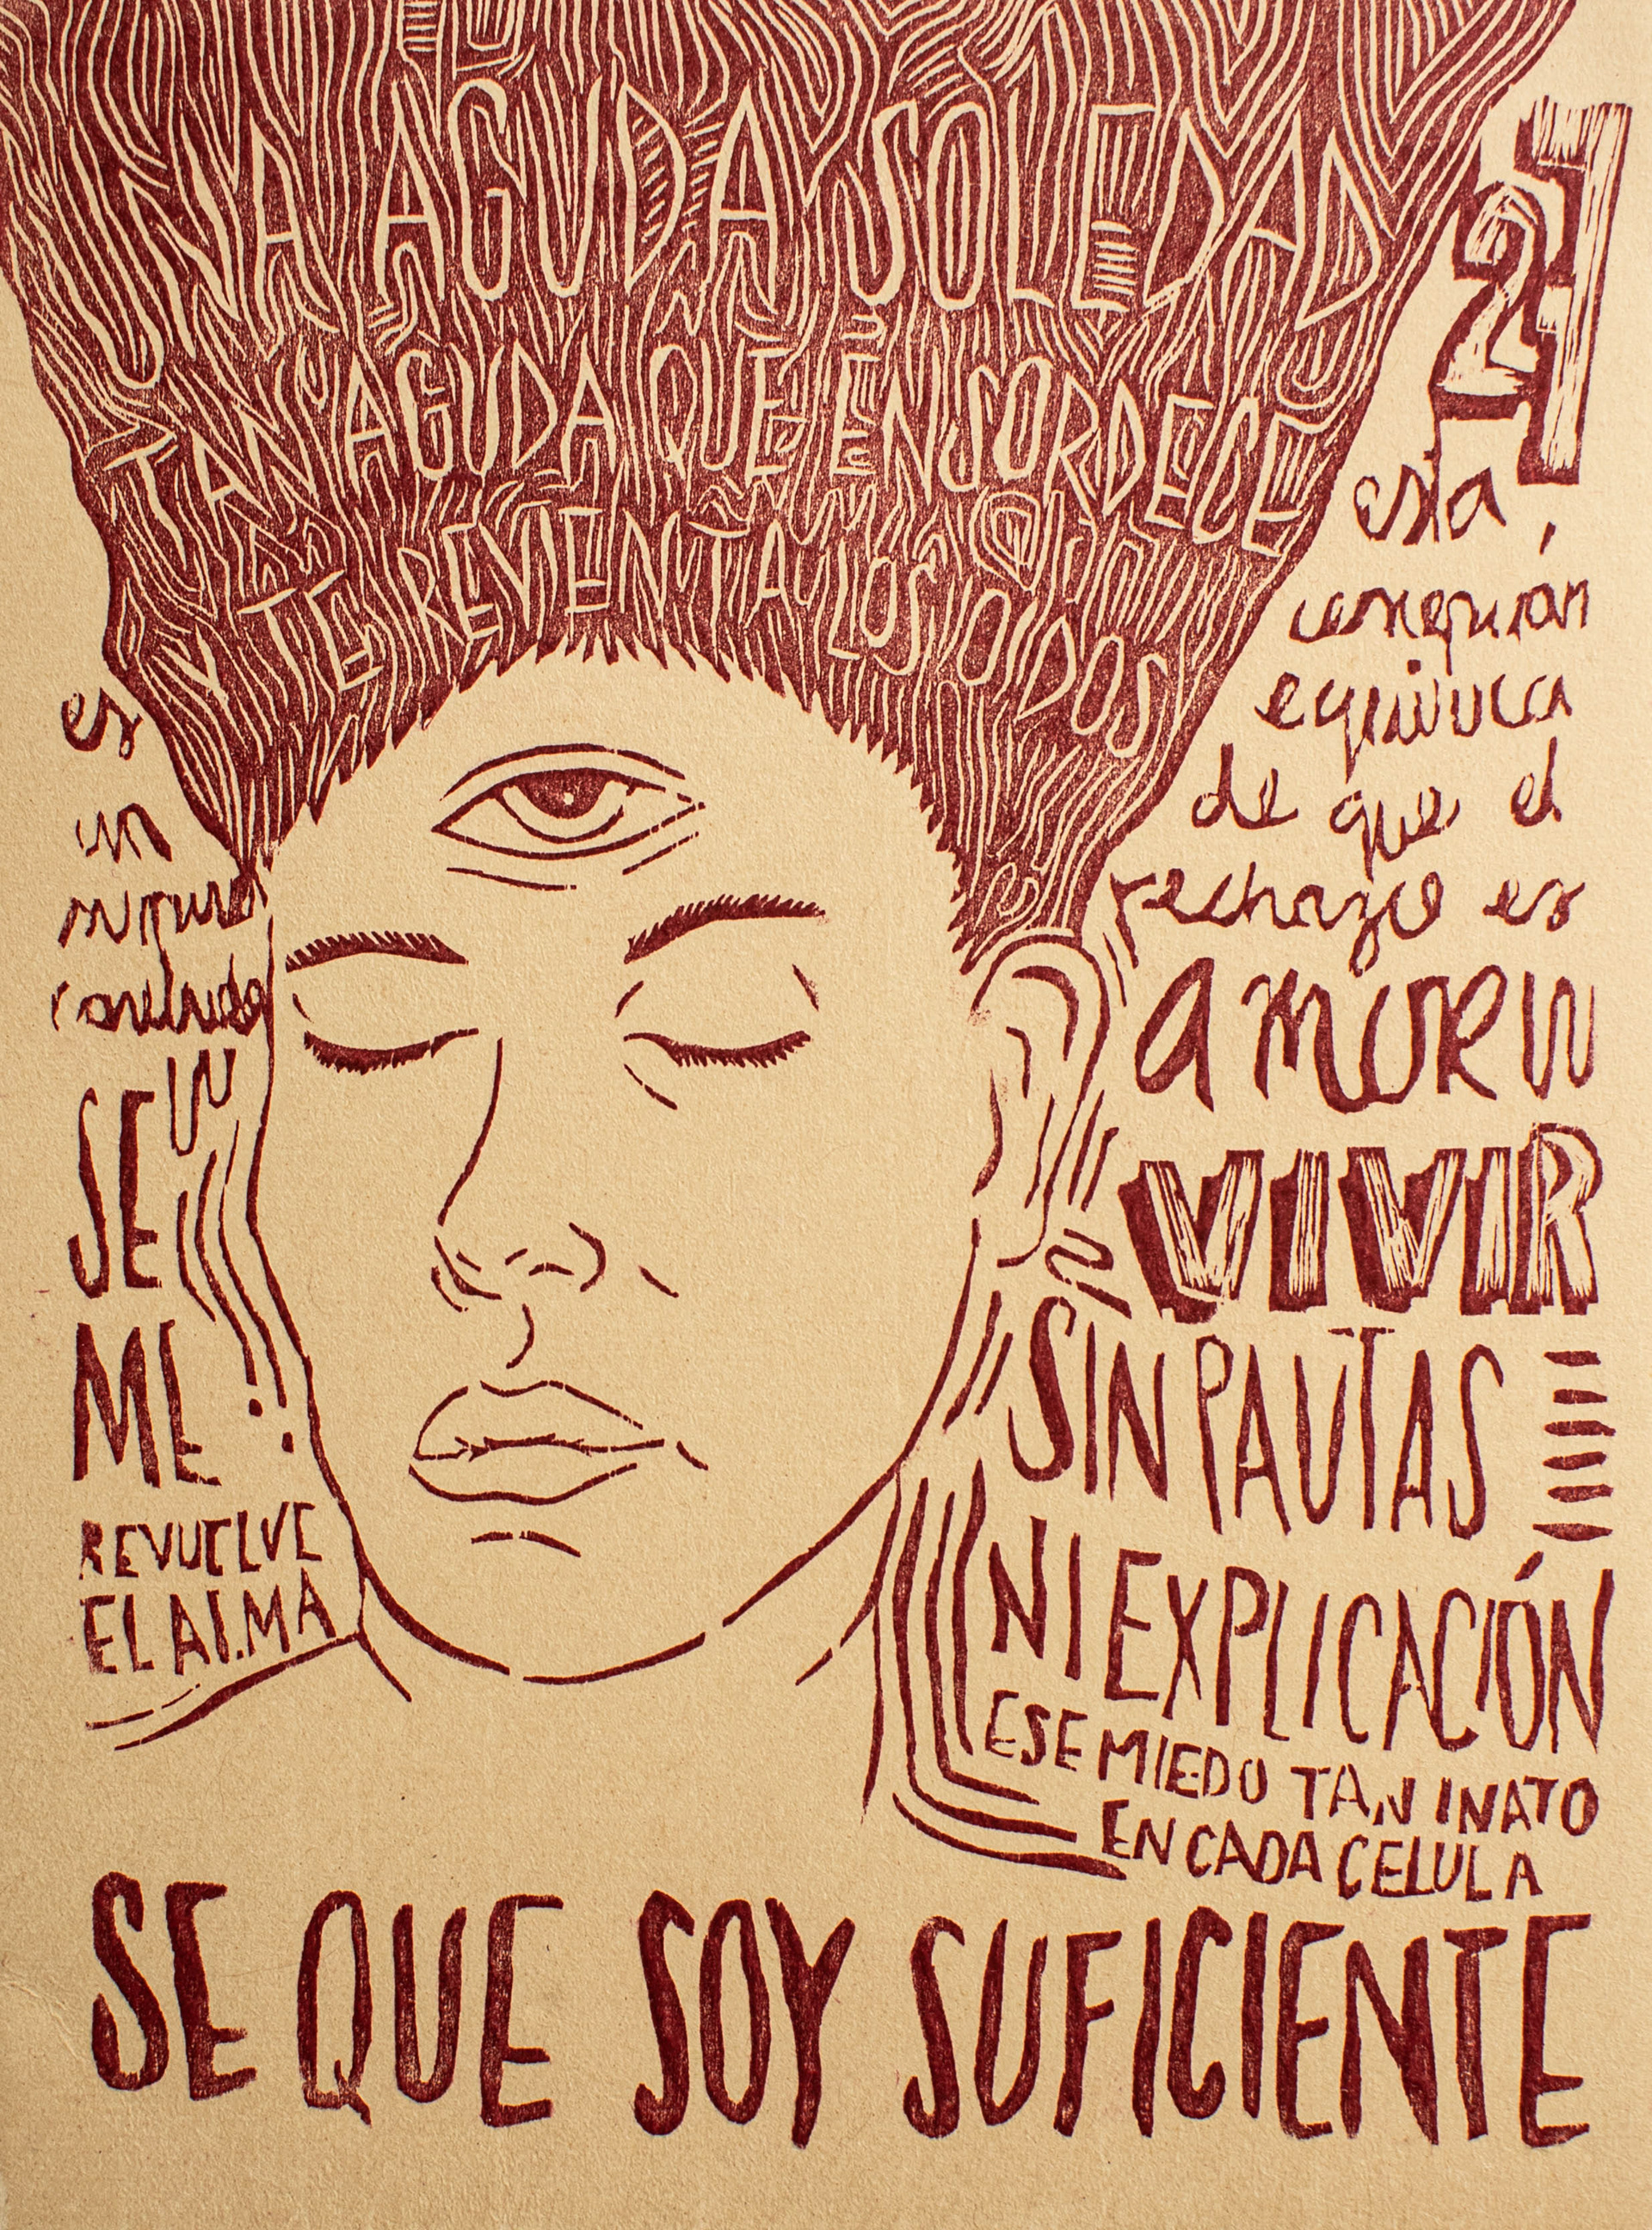 UNA AGUDA SOLEDAD
TAN AGUDA QUE ENSORDECE
Y TE REVIENTA LOS OIDOS
es
un
SE
ME
REVUELVE
EL ALMA
esta
equivoca
de que el
rechazo es
amor
VIVIR
SIN PAUTAS
NI EXPLICACIÓN
ESE MIEDO TAN INATO
EN CADA CELULA
SE QUE SOY SUFICIENTE